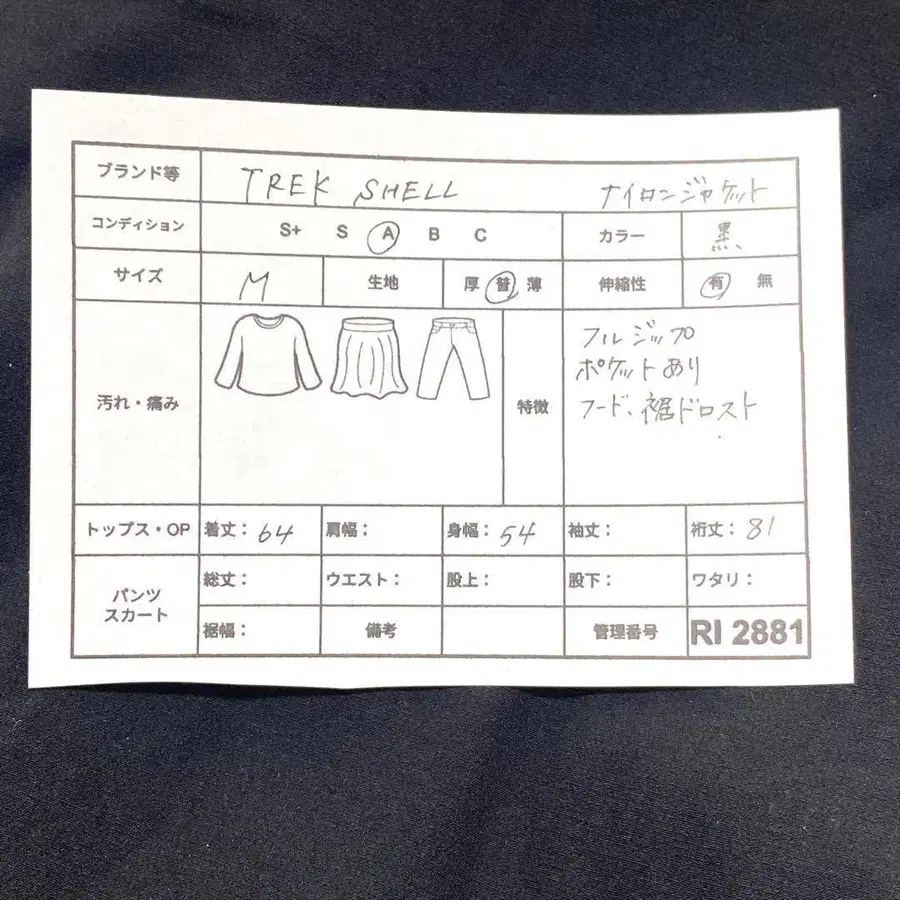 ブランド等 TREK SHELL ナイロンジャケット
コンディション S+ S A B C カラー 黒
サイズ M 生地 厚 普 薄 伸縮性 有 無
汚れ・痛み 特徴
フルジップ
ポケットあり
フード、裾ドロスト
トップス・OP 着丈：64 肩幅： 身幅：54 袖丈： 裄丈：81
パンツ
スカート
総丈： ウエスト： 股上： 股下： ワタリ：
裾幅： 備考 管理番号 RI 2881